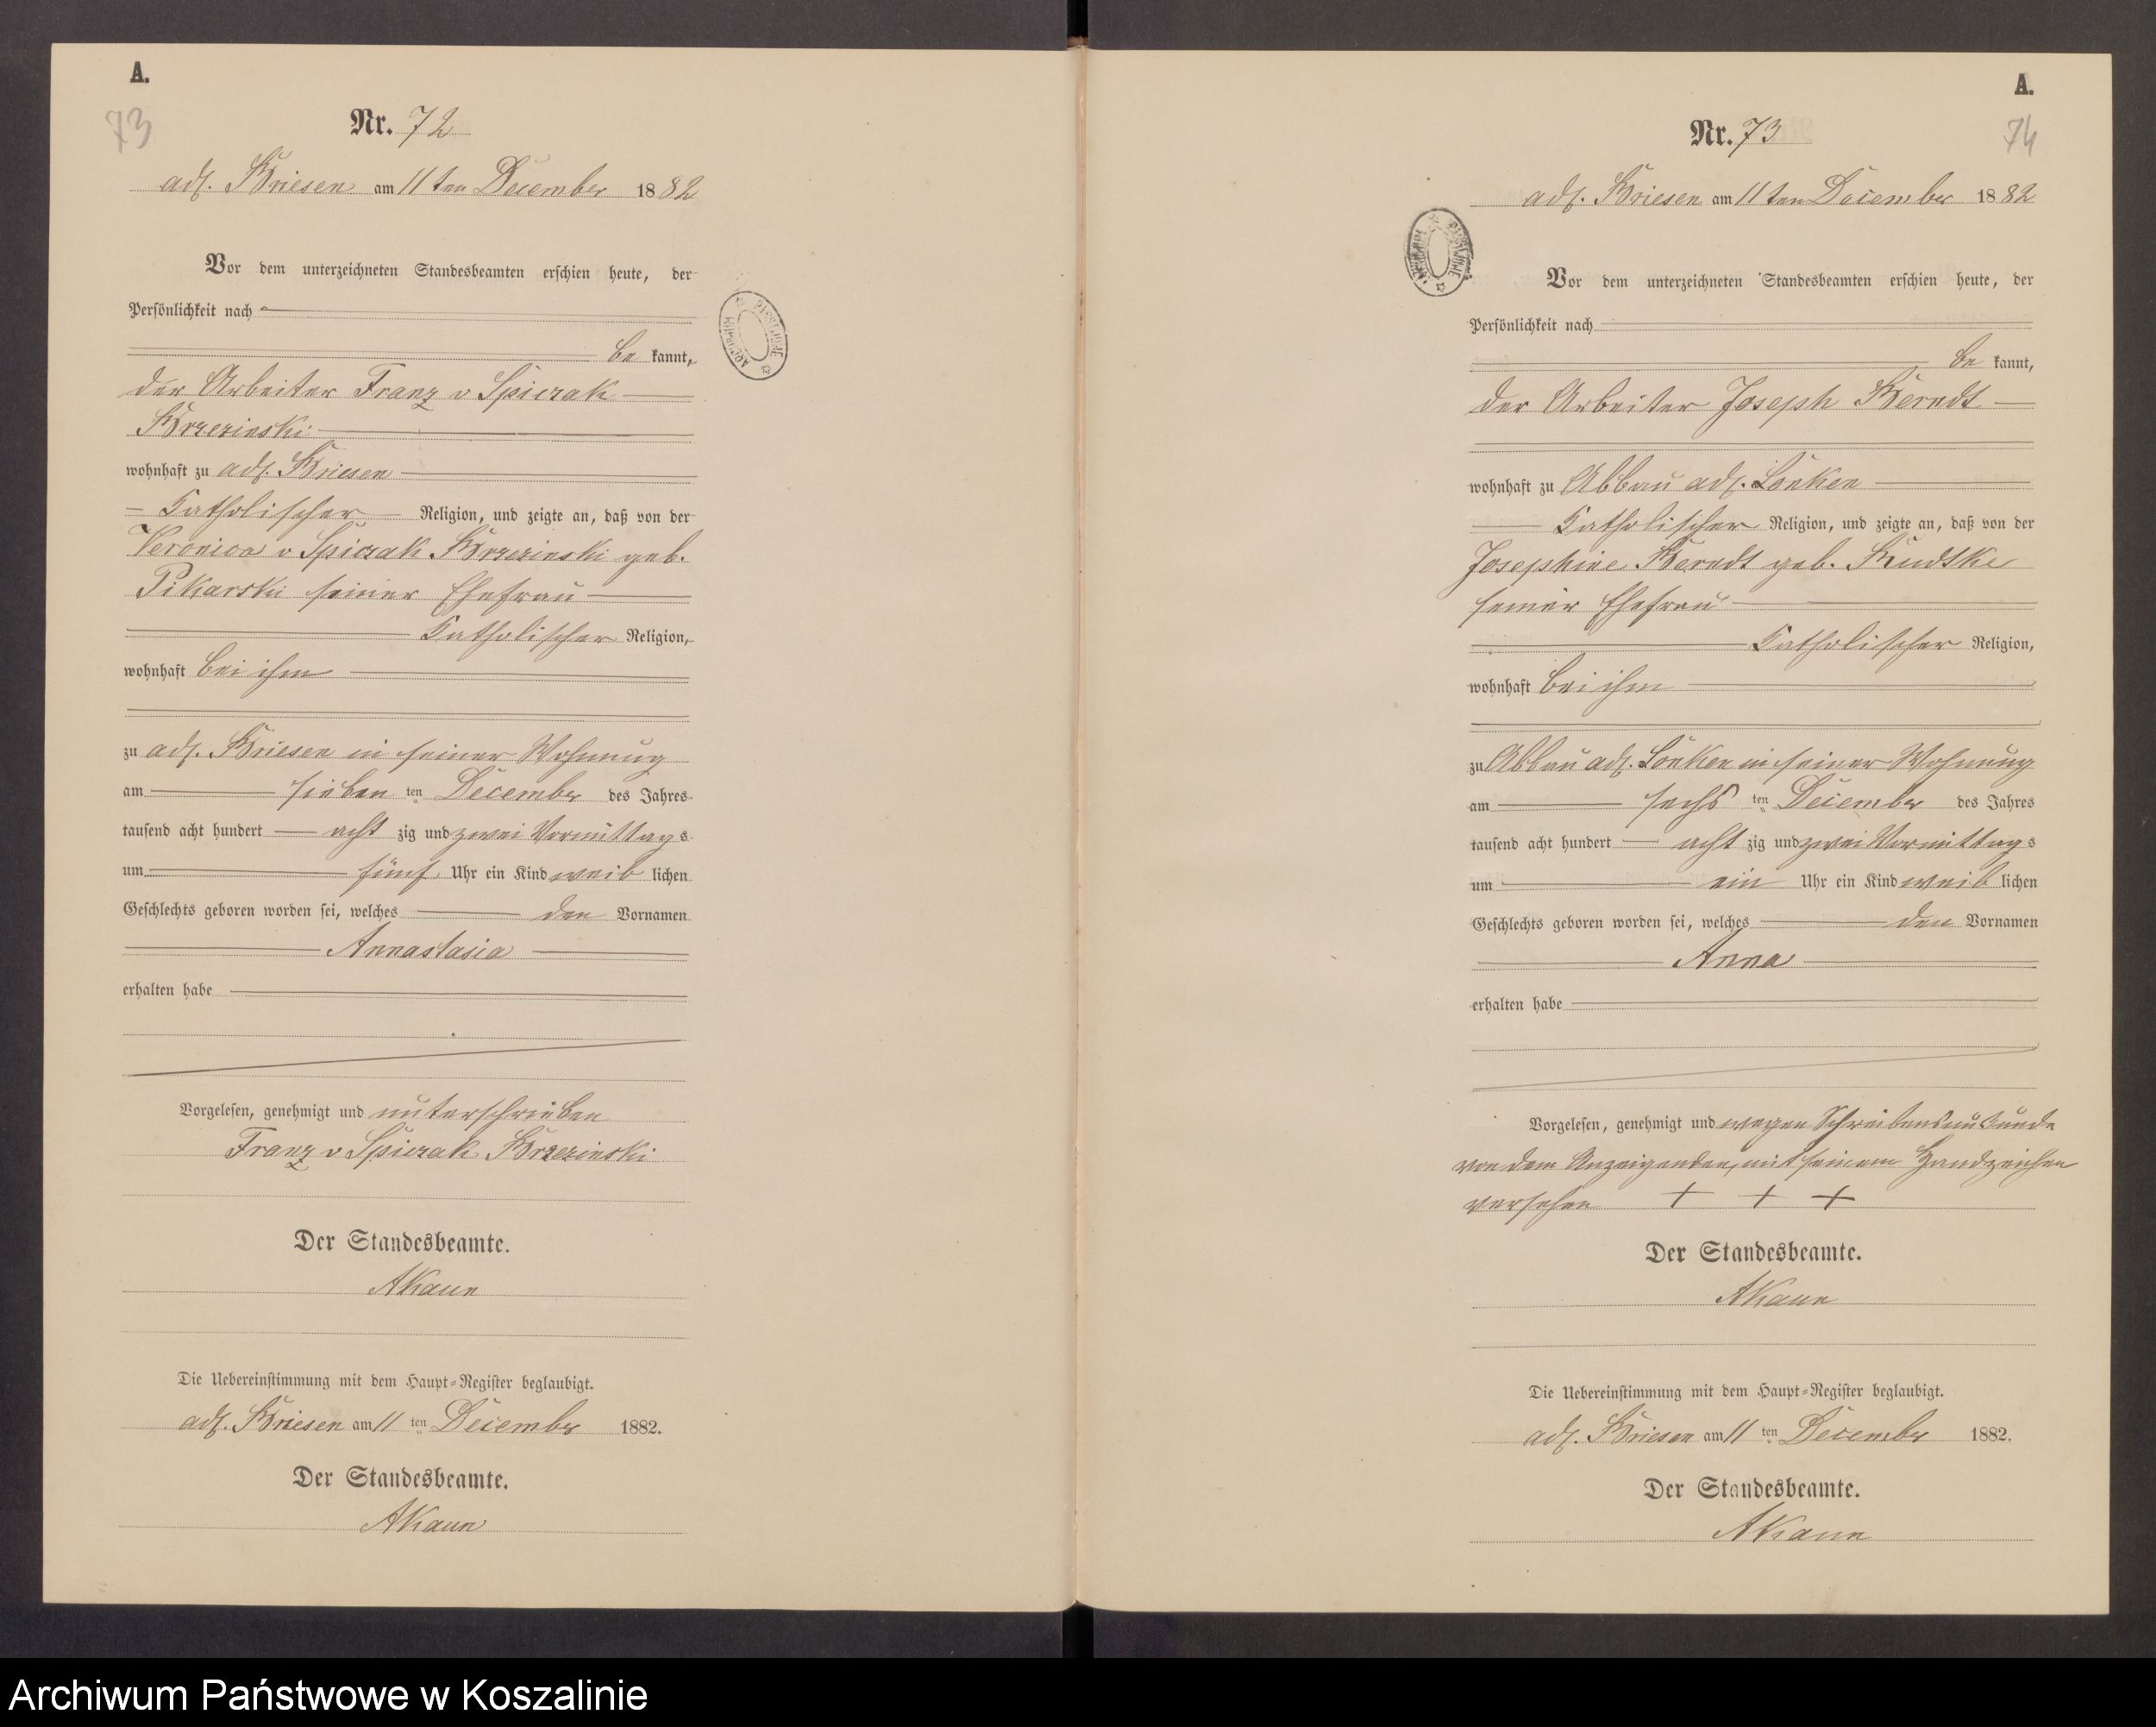 A.
73
Nr. 72
adl. Briesen am 11ten December 1882
Vor dem unterzeichneten Standesbeamten erschien heute, der
Persönlichkeit nach
be kannt,
der Arbeiter Franz v Spiczak
Brzezinski
wohnhaft zu adl. Briesen
Katholischer Religion, und zeigte an, daß von der
Veronica v Spiczak Brzezinski geb.
Pikarski seiner Ehefrau
Katholischer Religion,
wohnhaft bei ihm
zu adl. Briesen in seiner Wohnung
am sieben ten December des Jahres
tausend acht hundert acht zig und zwei Vormittags
um fünf Uhr ein Kind weib lichen
Geschlechts geboren worden sei, welches den Vornamen
Annastasia
erhalten habe
Vorgelesen, genehmigt und unterschrieben
Franz v Spiczak Brzezinski
Der Standesbeamte.
AKaun
Die Uebereinstimmung mit dem Haupt-Register beglaubigt.
adl. Briesen am 11 ten December 1882.
Der Standesbeamte.
AKaun
ARCHIWUM PAŃSTWOWE
A.
74
Nr. 73
adl. Briesen am 11ten December 1882
ARCHIWUM PAŃSTWOWE
Vor dem unterzeichneten Standesbeamten erschien heute, der
Persönlichkeit nach
be kannt,
der Arbeiter Joseph Berndt
wohnhaft zu Abbau adl. Lonken
Katholischer Religion, und zeigte an, daß von der
Josephine Berndt geb.
seiner Ehefrau
Katholischer Religion,
wohnhaft bei ihm
zu Abbau adl. Lonken in seiner Wohnung
am sechs ten December des Jahres
tausend acht hundert acht zig und zwei Vormittags
um ein Uhr ein Kind weib lichen
Geschlechts geboren worden sei, welches den Vornamen
Anna
erhalten habe
Vorgelesen, genehmigt und wegen Schreibensunkunde
von dem Anzeigenden, mit seinem Handzeichen
versehen + + +
Der Standesbeamte.
AKaun
Die Uebereinstimmung mit dem Haupt-Register beglaubigt.
adl. Briesen am 11 ten December 1882.
Der Standesbeamte.
AKaun
Archiwum Państwowe w Koszalinie